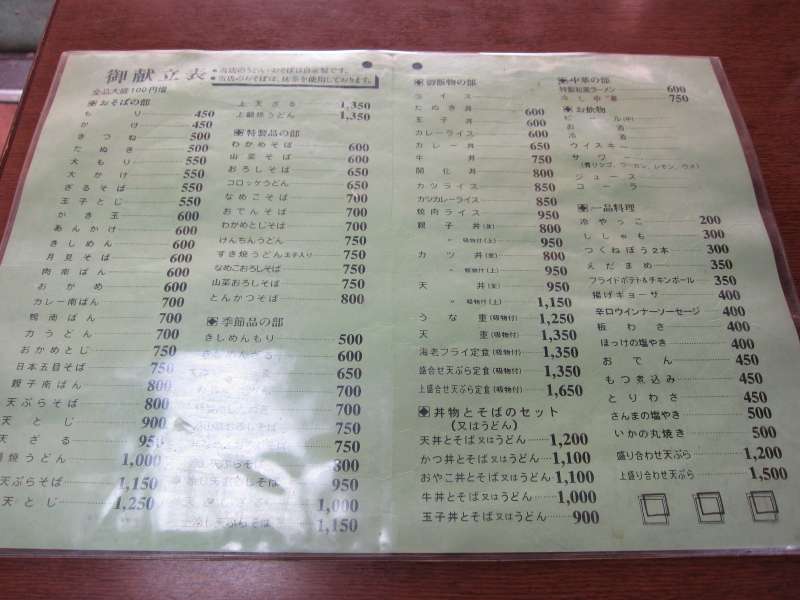 御献立表
全品大盛100円増
●当店のうどん・おそばは自家製です。
●当店のおそばは、抹茶を使用しております。
おそばの部
もり 450
かけ 450
きつね 500
たぬき 500
大もり 550
大かけ 550
ざるそば 550
玉子とじ 550
かき玉 600
あんかけ 600
きしめん 600
月見そば 600
肉南ばん 600
おかめ 600
カレー南ばん 700
鴨南ばん 700
力うどん 700
おかめとじ 750
日本五目そば 750
親子南ばん 800
天ぷらそば 800
天とじ 900
天ざる 950
焼うどん 1,000
天ぷらそば 1,150
天とじ 1,250
上天ざる 1,350
上鍋焼うどん 1,350
特製品の部
わかめそば 600
山菜そば 600
おろしそば 650
コロッケうどん 650
なめこそば 700
おでんそば 700
わかめとじそば 700
けんちんうどん 750
すき焼うどん玉子入り 750
なめこおろしそば 750
山菜おろしそば 750
とんかつそば 800
季節品の部
きしめんもり 500
600
650
700
700
750
750
天ぷらそば 800
950
1,000
天ぷらそば 1,150
御飯物の部
ライス
たぬき丼 600
玉子丼 600
カレーライス 600
カレー丼 650
牛丼 750
開化丼 800
カツライス 850
カツカレーライス 850
焼肉ライス 950
親子丼(並) 800
〃 吸物付(上) 950
カツ丼(並) 800
〃 吸物付(上) 950
天丼(並) 950
〃 吸物付(上) 1,150
うな重(吸物付) 1,250
天重(吸物付) 1,350
海老フライ定食(吸物付) 1,350
盛合せ天ぷら定食(吸物付) 1,350
上盛合せ天ぷら定食(吸物付) 1,650
丼物とそばのセット
(又はうどん)
天丼とそば又はうどん 1,200
かつ丼とそば又はうどん 1,100
おやこ丼とそば又はうどん 1,100
牛丼とそば又はうどん 1,000
玉子丼とそば又はうどん 900
中華の部
特製和風ラーメン 600
冷し中華 750
お飲物
ビール(中)
お酒
冷酒
ウイスキー
サワー
(青リンゴ、ウーロン、レモン、ウメ)
ジュース
コーラ
一品料理
冷やっこ 200
ししゃも 300
つくねぼう2本 300
えだまめ 350
フライドポテト&チキンボール 350
揚げギョーザ 400
辛口ウインナーソーセージ 400
板わさ 400
ほっけの塩やき 400
おでん 450
もつ煮込み 450
とりわさ 450
さんまの塩やき 500
いかの丸焼き 500
盛り合わせ天ぷら 1,200
上盛り合わせ天ぷら 1,500